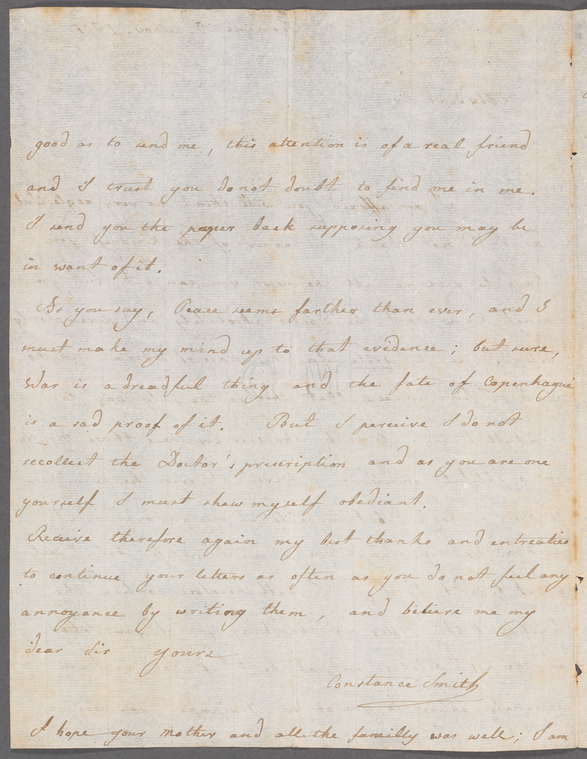 good as to send me, this attention is of a real friend
and I trust you do not doubt to find me in me.
I send you the paper back supposing you may be
in want of it.
As you say, Peace seems farther than ever, and I
must make my mind up to that evidence; but sure,
War is a dreadful thing and the fate of Copenhague
is a sad proof of it. But I perceive I do not
recollect the Doctor's prescription and as you are one
yourself I must shew myself obediant.
Receive therefore again my best thanks and entreaties
to continue your letters as often as you do not feel any
annoyance by writing them, and believe me my
dear Sir yours
Constance Smith
I hope your mother and all the familly was well; I am